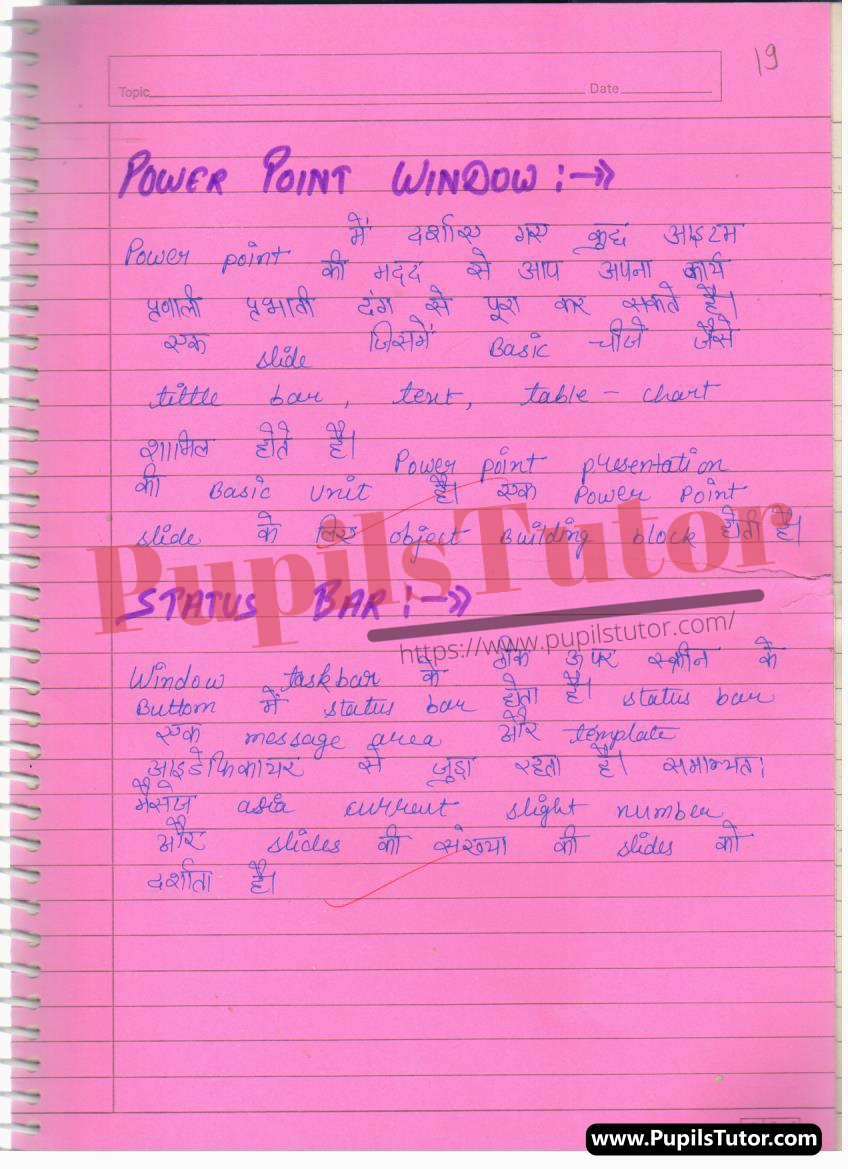 19
Topic Date
POWER POINT WINDOW :->>
Power point में दर्शाए गए कुछ आइटम
की मदद से आप अपना कार्य
प्रणाली प्रभावी ढंग से पूरा कर सकते है।
एक slide जिसमें Basic चीजे जैसे
tittle bar, text, table - chart
शामिल होते है। Power point presentation
की Basic unit है। एक Power Point
slide के लिए object Building block होती है।
PupilsTutor
STATUS BAR :->>
https://www.pupilstutor.com/
Window taskbar के ठीक ऊपर स्क्रीन के
Buttom में status bar होता है। status bar
एक message area और template
आइडेफिकायर से जुड़ा रहता है। समान्यत।
मैसेज asia current slight number
और slides की संख्या की slides को
दर्शाता है।
www.PupilsTutor.com